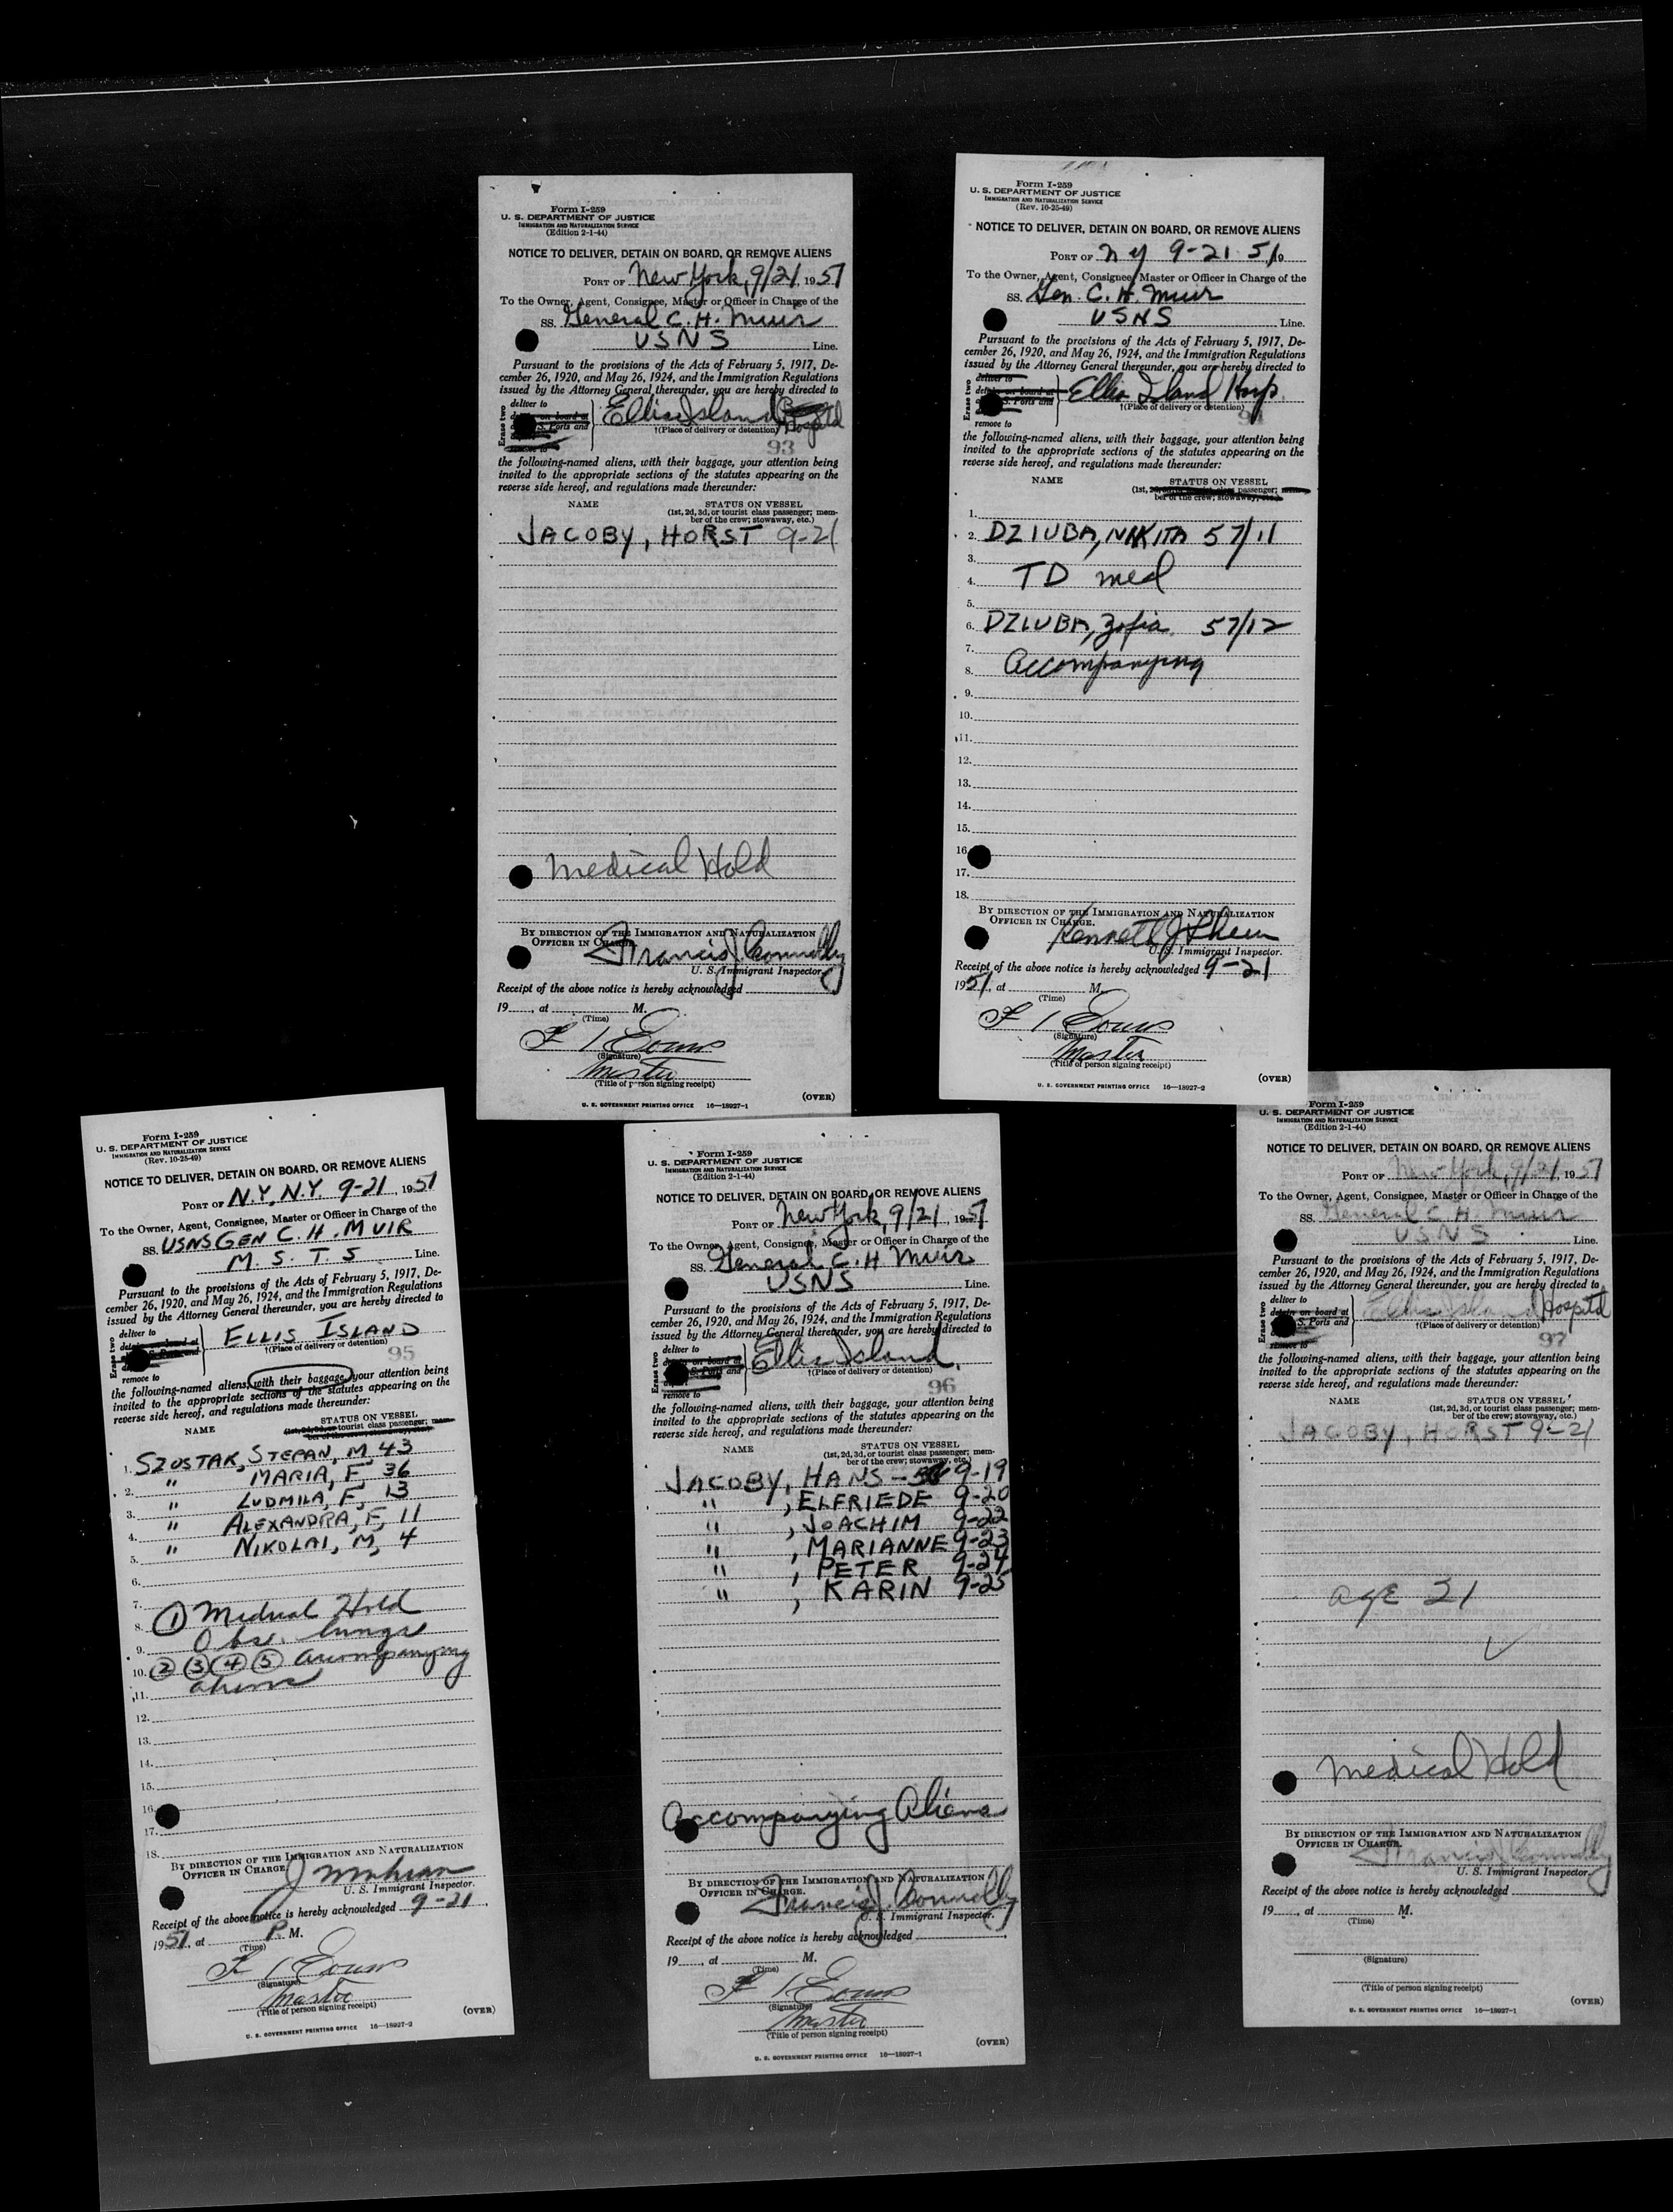 Form I-259
U. S. DEPARTMENT OF JUSTICE
IMMIGRATION AND NATURALIZATION SERVICE
(Edition 2-1-44)
NOTICE TO DELIVER, DETAIN ON BOARD, OR REMOVE ALIENS
PORT OF New York, 9/21, 1951
To the Owner, Agent, Consignee, Master or Officer in Charge of the
SS. General C. H. Muir
USNS Line.
Pursuant to the provisions of the Acts of February 5, 1917, De-
cember 26, 1920, and May 26, 1924, and the Immigration Regulations
issued by the Attorney General thereunder, you are hereby directed to
Erase two
deliver to
on board at
S. Ports and
remove to
Ellis Island Hospital
†(Place of delivery or detention)
93
the following-named aliens, with their baggage, your attention being
invited to the appropriate sections of the statutes appearing on the
reverse side hereof, and regulations made thereunder:
NAME STATUS ON VESSEL
(1st, 2d, 3d, or tourist class passenger; mem-
ber of the crew; stowaway, etc.)
JACOBY, HORST 9-21
Medical Hold
BY DIRECTION OF THE IMMIGRATION AND NATURALIZATION
OFFICER IN CHARGE.
Francis J. Connolly
U. S. Immigrant Inspector.
Receipt of the above notice is hereby acknowledged
19 , at M.
(Time)
F I Evans
(Signature)
Master
(Title of person signing receipt)
(OVER)
U. S. GOVERNMENT PRINTING OFFICE 16—18927-1
Form I-259
U. S. DEPARTMENT OF JUSTICE
IMMIGRATION AND NATURALIZATION SERVICE
(Rev. 10-25-49)
NOTICE TO DELIVER, DETAIN ON BOARD, OR REMOVE ALIENS
PORT OF N Y 9-21-51, 19
To the Owner, Agent, Consignee, Master or Officer in Charge of the
SS. Gen. C. H. Muir
USNS Line.
Pursuant to the provisions of the Acts of February 5, 1917, De-
cember 26, 1920, and May 26, 1924, and the Immigration Regulations
issued by the Attorney General thereunder, you are hereby directed to
Erase two
deliver to
on board at
S. Ports and
remove to
Ellis Island Hosp.
†(Place of delivery or detention)
94
the following-named aliens, with their baggage, your attention being
invited to the appropriate sections of the statutes appearing on the
reverse side hereof, and regulations made thereunder:
NAME STATUS ON VESSEL
(1st, 2d, 3d, or tourist class passenger; mem-
ber of the crew; stowaway, etc.)
1.
2. DZIUBA, NIKITA 57/11
3.
4. TD med
5.
6. DZIUBA, Zofia 57/12
7.
8. Accompanying
9.
10.
11.
12.
13.
14.
15.
16.
17.
18.
BY DIRECTION OF THE IMMIGRATION AND NATURALIZATION
OFFICER IN CHARGE.
Kenneth J
U. S. Immigrant Inspector.
Receipt of the above notice is hereby acknowledged 9-21
1951, at M.
(Time)
F I Evans
(Signature)
Master
(Title of person signing receipt)
(OVER)
U. S. GOVERNMENT PRINTING OFFICE 16—18927-2
Form I-259
U. S. DEPARTMENT OF JUSTICE
IMMIGRATION AND NATURALIZATION SERVICE
(Rev. 10-25-49)
NOTICE TO DELIVER, DETAIN ON BOARD, OR REMOVE ALIENS
PORT OF N.Y., N.Y. 9-21, 1951
To the Owner, Agent, Consignee, Master or Officer in Charge of the
SS. USNS GEN C. H. MUIR
M. S. T. S Line.
Pursuant to the provisions of the Acts of February 5, 1917, De-
cember 26, 1920, and May 26, 1924, and the Immigration Regulations
issued by the Attorney General thereunder, you are hereby directed to
Erase two
deliver to
on board at
S. Ports and
remove to
ELLIS ISLAND
†(Place of delivery or detention)
95
the following-named aliens, with their baggage, your attention being
invited to the appropriate sections of the statutes appearing on the
reverse side hereof, and regulations made thereunder:
NAME STATUS ON VESSEL
(1st, 2d, 3d, or tourist class passenger; mem-
ber of the crew; stowaway, etc.)
1. SZOSTAK, STEPAN, M 43
2. " MARIA, F, 36
3. " LUDMILA, F, 13
4. " ALEXANDRA, F, 11
5. " NIKOLAI, M, 4
6.
7.
8. ① Medical Hold
9. Obs. lungs
10. ② ③ ④ ⑤ accompanying
11. aliens
12.
13.
14.
15.
16.
17.
18.
BY DIRECTION OF THE IMMIGRATION AND NATURALIZATION
OFFICER IN CHARGE.
U. S. Immigrant Inspector.
Receipt of the above notice is hereby acknowledged 9-21
1951, at P. M.
(Time)
F I Evans
(Signature)
Master
(Title of person signing receipt)
(OVER)
U. S. GOVERNMENT PRINTING OFFICE 16—18927-2
Form I-259
U. S. DEPARTMENT OF JUSTICE
IMMIGRATION AND NATURALIZATION SERVICE
(Edition 2-1-44)
NOTICE TO DELIVER, DETAIN ON BOARD, OR REMOVE ALIENS
PORT OF New York, 9/21, 1951
To the Owner, Agent, Consignee, Master or Officer in Charge of the
SS. General C. H Muir
USNS Line.
Pursuant to the provisions of the Acts of February 5, 1917, De-
cember 26, 1920, and May 26, 1924, and the Immigration Regulations
issued by the Attorney General thereunder, you are hereby directed to
Erase two
deliver to
on board at
S. Ports and
remove to
Ellis Island.
†(Place of delivery or detention)
96
the following-named aliens, with their baggage, your attention being
invited to the appropriate sections of the statutes appearing on the
reverse side hereof, and regulations made thereunder:
NAME STATUS ON VESSEL
(1st, 2d, 3d, or tourist class passenger; mem-
ber of the crew; stowaway, etc.)
JACOBY, HANS - 9-19
" , ELFRIEDE 9-20
" , JOACHIM 9-22
" , MARIANNE 9-23
" , PETER 9-24
" , KARIN 9-25
Accompanying Aliens
BY DIRECTION OF THE IMMIGRATION AND NATURALIZATION
OFFICER IN CHARGE.
Francis J. Connolly
U. S. Immigrant Inspector.
Receipt of the above notice is hereby acknowledged
19 , at M.
(Time)
F I Evans
(Signature)
Master
(Title of person signing receipt)
(OVER)
U. S. GOVERNMENT PRINTING OFFICE 16—18927-1
Form I-259
U. S. DEPARTMENT OF JUSTICE
IMMIGRATION AND NATURALIZATION SERVICE
(Edition 2-1-44)
NOTICE TO DELIVER, DETAIN ON BOARD, OR REMOVE ALIENS
PORT OF New York, 9/21, 1951
To the Owner, Agent, Consignee, Master or Officer in Charge of the
SS. General C. H. Muir
USNS Line.
Pursuant to the provisions of the Acts of February 5, 1917, De-
cember 26, 1920, and May 26, 1924, and the Immigration Regulations
issued by the Attorney General thereunder, you are hereby directed to
Erase two
deliver to
detain on board at
S. Ports and
remove to
Ellis Island Hospital
†(Place of delivery or detention)
97
the following-named aliens, with their baggage, your attention being
invited to the appropriate sections of the statutes appearing on the
reverse side hereof, and regulations made thereunder:
NAME STATUS ON VESSEL
(1st, 2d, 3d, or tourist class passenger; mem-
ber of the crew; stowaway, etc.)
JACOBY, HORST 9-21
age 21
Medical Hold
BY DIRECTION OF THE IMMIGRATION AND NATURALIZATION
OFFICER IN CHARGE.
Francis J. Connolly
U. S. Immigrant Inspector.
Receipt of the above notice is hereby acknowledged
19 , at M.
(Time)
(Signature)
(Title of person signing receipt)
(OVER)
U. S. GOVERNMENT PRINTING OFFICE 16—18927-1